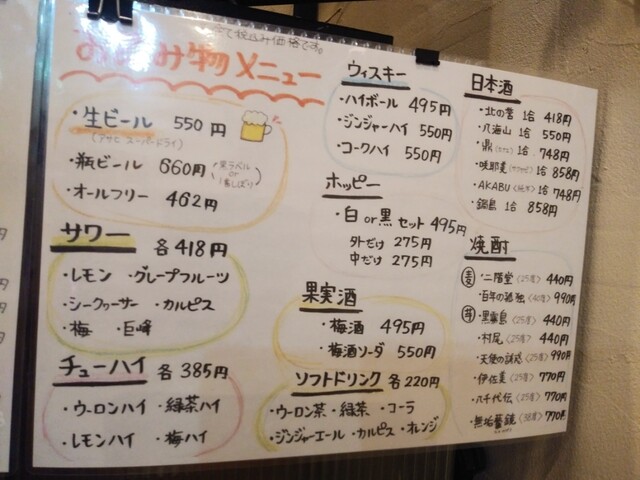 全て税込み価格です。
お飲み物メニュー
・生ビール 550円
(アサヒ スーパードライ)
・瓶ビール 660円 (黒ラベル or 一番しぼり)
・オールフリー 462円
サワー 各418円
・レモン ・グレープフルーツ
・シークヮーサー ・カルピス
・梅 ・巨峰
チューハイ 各385円
・ウーロンハイ ・緑茶ハイ
・レモンハイ ・梅ハイ
ウィスキー
・ハイボール 495円
・ジンジャーハイ 550円
・コークハイ 550円
ホッピー
・白or黒 セット 495円
外だけ 275円
中だけ 275円
果実酒
・梅酒 495円
・梅酒ソーダ 550円
ソフトドリンク 各220円
・ウーロン茶 ・緑茶 ・コーラ
・ジンジャーエール ・カルピス ・オレンジ
日本酒
・北の誉 1合 418円
・八海山 1合 550円
・鼎 1合 748円
・咲耶美 1合 858円
・AKABU 1合 748円
・鍋島 1合 858円
焼酎
麦 ・二階堂 <25度> 440円
・百年の孤独 <40度> 990円
芋 ・黒霧島 <25度> 440円
・村尾 <25度> 990円
・天使の誘惑 <25度> 990円
・伊佐美 <25度> 770円
・八千代伝 <25度> 770円
・無垢 <38度> 770円